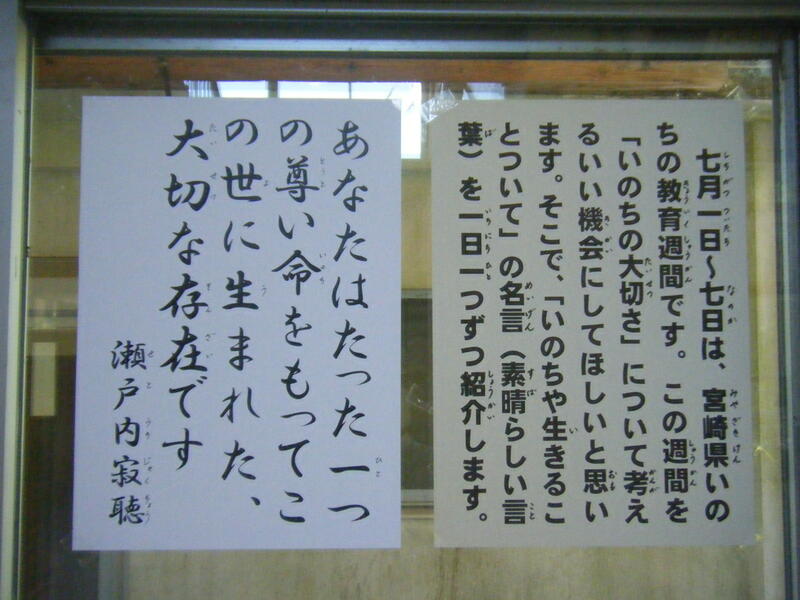 七月一日～七日は、宮崎県いの
ちの教育週間です。この週間を
「いのちの大切さ」について考え
るいい機会にしてほしいと思い
ます。そこで、「いのちや生きるこ
とついて」の名言（素晴らしい言
葉）を一日一つずつ紹介します。
あなたはたった一つ
の尊い命をもってこ
の世に生まれた、
大切な存在です
瀬戸内寂聴